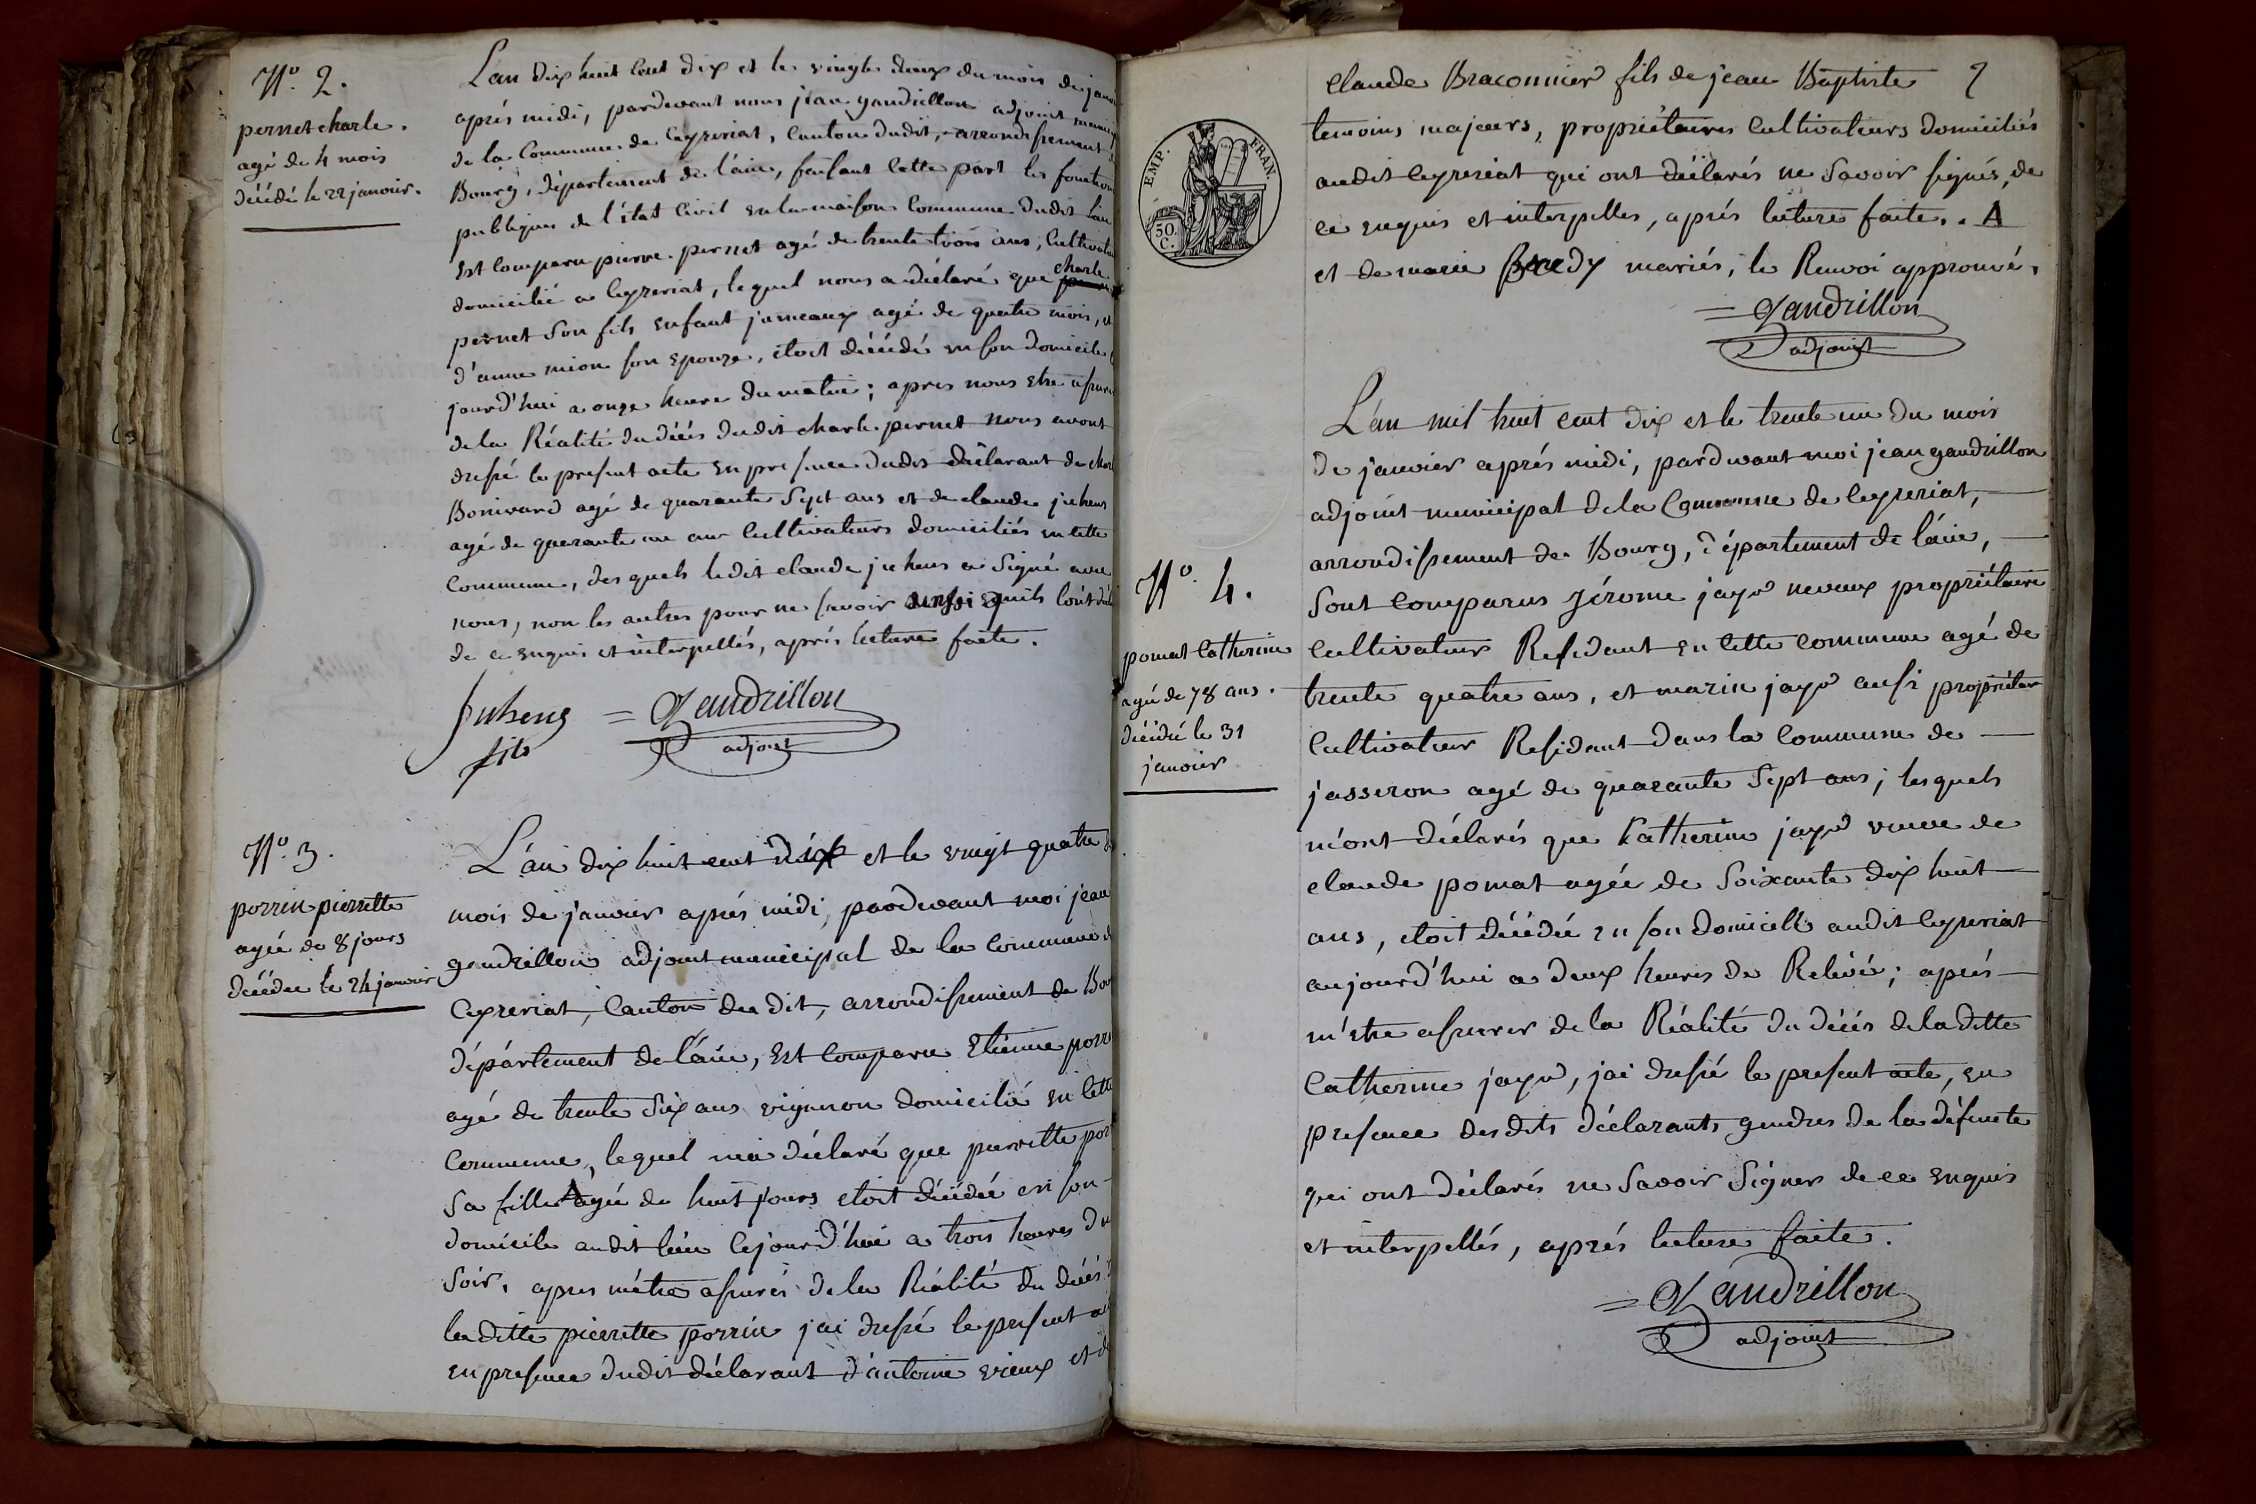 N.o 2.
pernet charle.
agé de 4 mois
décédé le 22 janvier.
L'an dix huit cent dix et le vingte deux du mois de janv
aprés midi, pardevant nous jean gandrillon adjoint munici
de la Commune de Ceyzeriat, canton dudit, arrondissement d
Bourg, département de l'ain, faisant cette part les fonction
publiques de l'état Civil en la maison Commune dudit lieu
Est Comparu pierre pernet agé de trente trois ans, Cultivat
charle
domicilié a Ceyzeriat, lequel nous a déclaré que
pernet son fils enfant jumeaux agé de quatre mois, et
d'anne mion son Epouze, etoit décédé en son domicile
jourd'hui a onze heure du matin; apres nous etre assuré
de la Réalité du décés dudit charle pernet nous avont
dressé le present acte en presence dudit déclarant de char
Bonivard agé de quarante Sept ans et de claude juhens
agé de quarante un ans Cultivateurs domiciliés en cette
Commune, des quels ledit claude juhens a Signé avec
nous, non les autres pour ne savoir ainsi quils l'ont décl
de ce enquis et interpellés, aprés lecture faite.
Juhens = Gandrillon
fils adjoint
N.o 3.
porrin pierrette
agée de 8 jours
décédée le 24 janvier
L'an dix huit cent dix et le vingt quatre d
mois de janvier aprés midi, pardevant moi jean
gandrillon adjoint municipal de la Commune d
Ceyzeriat, Canton du dit, arrondissement de Bou
département de l'ain, Est Comparu Etienne porr
agé de trente Six ans vigneron domicilié en cette
Commune, lequel m'a déclaré que pierrette por
sa fille A agée de huit jours etoit décédée en son
domicile audit lieu cejourd'hui a trois heures du
Soir, apres m'être assuré de la Réalité du décés d
la ditte pierrette porrin j'ai dressé le present a
en presence dudit déclarant d'antoine vieux et d
EMP. FRAN.
50.
C.
claude Braconnier fils de jean Baptiste
temoins majeurs, propriétaires Cultivateurs domiciliés
audit Ceyzeriat qui ont déclarés ne Savoir signés, de
ce enquis et interpelles, aprés lecture faite. . A
et de marie mariés, le Renvoi approuvé,
= Gandrillon
adjoint
N.o 4.
pomat Catherine
agée de 78 ans.
décédée le 31
janvier
L'an mil huit cent dix et le trente un du mois
de janvier aprés midi, pardevant moi jean gandrillon
adjoint municipal de la Commune de Ceyzeriat,
arrondissement de Bourg, département de l'ain,
Sont Comparus Jérome jayr neveux propriétaire
Cultivateur Residant en cette commune agé de
trente quatre ans, et marin jayr aussi propriétaire
Cultivateur Residant dans la Commune de
jasseron agé de quarante Sept ans; les quels
m'ont déclarés que Catherine jayr veuve de
claude pomat agée de Soixante dix huit
ans, etoit décédée en son domicille audit Ceyzeriat
aujourd'hui a deux heures de Relévé; aprés
m'etre assurer de la Réalité du décés de la ditte
Catherine jayr, jai dressé le present acte, en
presence des dits déclarants gendres de la défunte
qui ont déclarés ne Savoir Signer de ce enquis
et interpellés, aprés lecture faite.
= Gandrillon
adjoint